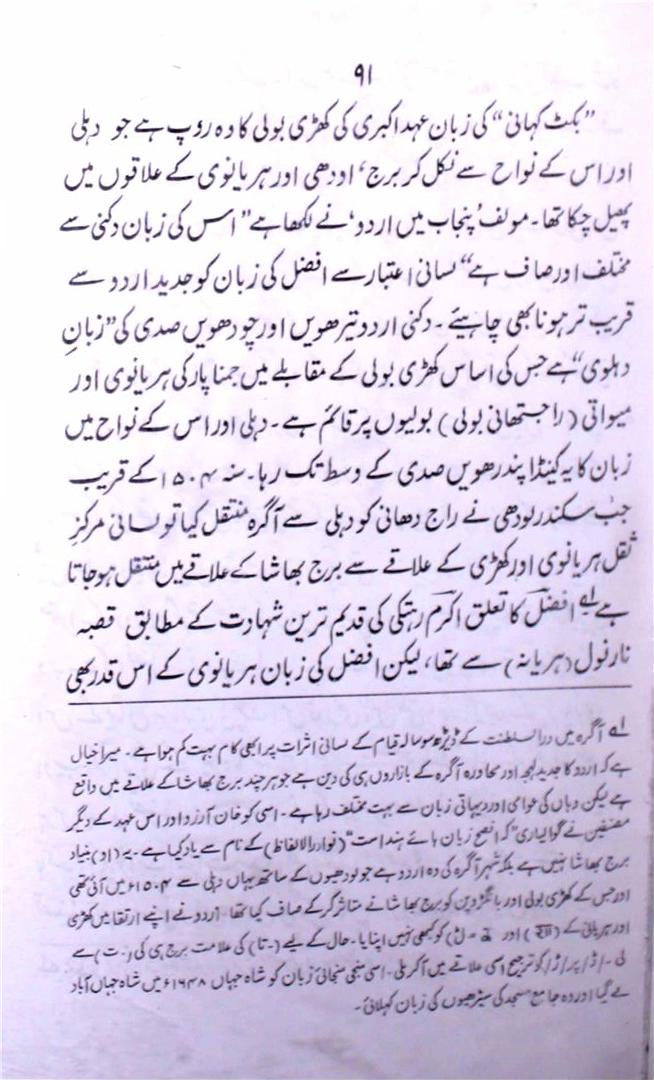 ۹۱
”بکٹ کہانی“ کی زبان عہد اکبری کی کھڑی بولی کا وہ روپ ہے جو دہلی
اور اس کے نواح سے نکل کر برج، اودھی اور ہریانوی کے علاقوں میں
پھیل چکا تھا۔ مولف ’پنجاب میں اردو‘ نے لکھا ہے ”اس کی زبان دکنی سے
مختلف اور صاف ہے“ لسانی اعتبار سے افضل کی زبان کو جدید اردو سے
قریب تر ہونا بھی چاہیئے۔ دکنی اردو تیرھویں اور چودھویں صدی کی ”زبانِ
دہلوی“ ہے جس کی اساس کھڑی بولی کے مقابلے میں جمنا پار کی ہریانوی اور
میواتی (راجستھانی بولی) بولیوں پر قائم ہے۔ دہلی اور اس کے نواح میں
زبان کا یہ کینڈا پندرھویں صدی کے وسط تک رہا۔ سنہ ۱۵۰۴ء کے قریب
جب سکندر لودھی نے راج دھانی کو دہلی سے آگرہ منتقل کیا تو لسانی مرکزِ
ثقل ہریانوی اور کھڑی کے علاقے سے برج بھاشا کے علاقے میں منتقل ہو جاتا
ہے لہ افضل کا تعلق اکرم رہتکی کی قدیم ترین شہادت کے مطابق قصبہ
نارنول (ہریانہ) سے تھا، لیکن افضل کی زبان ہریانوی کے اس قدر بھی
لہ آگرہ میں دارالسلطنت کے ڈیڑھ سو سالہ قیام کے لسانی اثرات پر ابھی کام بہت کم ہوا ہے۔ میرا خیال
ہے کہ اردو کا جدید لہجہ اور محاورہ آگرہ کے بازاروں ہی کی دین ہے جو ہر چند برج بھاشا کے علاقے میں واقع
ہے لیکن وہاں کی عوامی اور دیہاتی زبان سے بہت مختلف رہا ہے۔ اسی کو خان آرزو اور اس عہد کے دیگر
مصنفین نے گوالیاری ”کہ افصح زبان ہائے ہند است“ (نوادر الالفاظ) کے نام سے یاد کیا ہے۔ یہ (او) بنیاد
برج بھاشا نہیں ہے بلکہ شہر آگرہ کی وہ اردو ہے جو لودھیوں کے ساتھ یہاں دہلی سے ۱۵۰۴ء میں آئی تھی
اور جس کے کھڑی بولی اور بانگڑو پن کو برج بھاشا نے متاثر کر کے صاف کیا تھا۔ اردو نے اپنے ارتقا میں کھڑی
اور ہریانی کے اور کو کبھی نہیں اپنایا۔ حال کے لیے (-تا) کی علامت برج ہی کی (-ت) سے
لی۔ /ڈ/ پر /ڑ/ کو ترجیح اسی علاقے میں آکر ملی۔ اسی منجی منجائی زبان کو شاہ جہاں ۱۶۴۸ء میں شاہ جہاں آباد
لے گیا اور وہ جامع مسجد کی سیڑھیوں کی زبان کہلائی۔